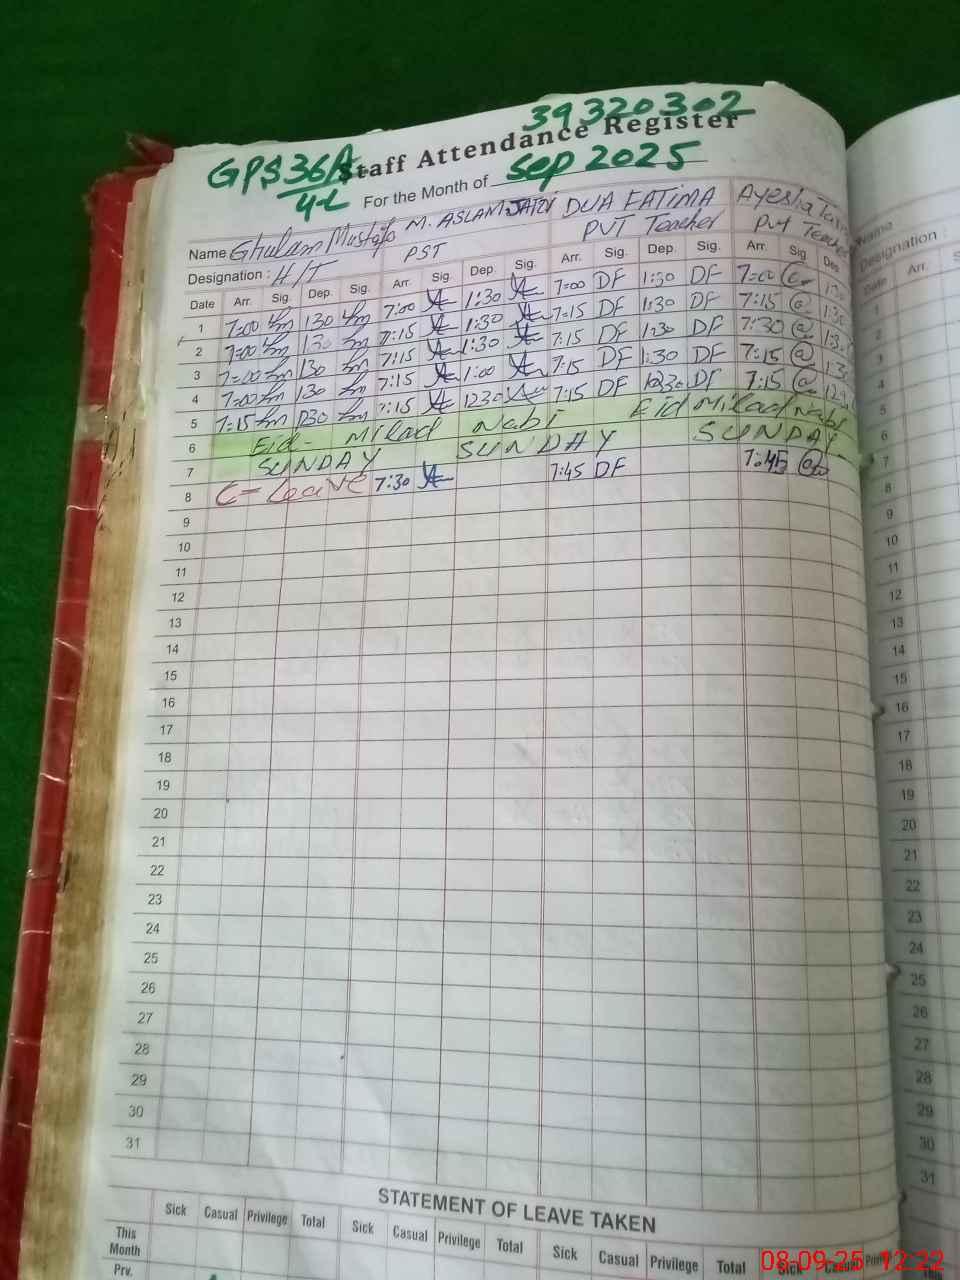 39320302
Staff Attendance Register
GPS 36A/4-L
For the Month of Sep 2025
Name Ghulam Mustafa M. ASLAM JAFRI DUA FATIMA Ayesha
Designation : H/T PST PVT Teacher PVT Teacher
Date Arr. Sig. Dep. Sig. Arr. Sig. Dep. Sig. Arr. Sig. Dep. Sig. Arr. Sig. Dep.
1 7=00 130 7:00 1:30 7=00 DF 1:30 DF 7=00
2 7=00 1:30 7:15 1:30 7=15 DF 1:30 DF 7:15
3 7=00 130 7:15 1:30 7:15 DF 1:30 DF 7:30
4 7=00 130 7:15 1:00 7:15 DF 1:30 DF 7:15
5 7:15 130 7:15 1230 7:15 DF 1230 DF 7:15
6 Eid- Milad Nabi Eid Milad Nabi
7 SUNDAY SUNDAY SUNDAY
8 C-Leave 7:30 7:45 DF 7:45
9
10
11
12
13
14
15
16
17
18
19
20
21
22
23
24
25
26
27
28
29
30
31
STATEMENT OF LEAVE TAKEN
Sick Casual Privilege Total Sick Casual Privilege Total Sick Casual Privilege Total Sick Casual
This Month
Prv.
Name
Designation :
Date Arr.
1
2
3
4
5
6
7
8
9
10
11
12
13
14
15
16
17
18
19
20
21
22
23
24
25
26
27
28
29
30
31
08-09-25 12:22